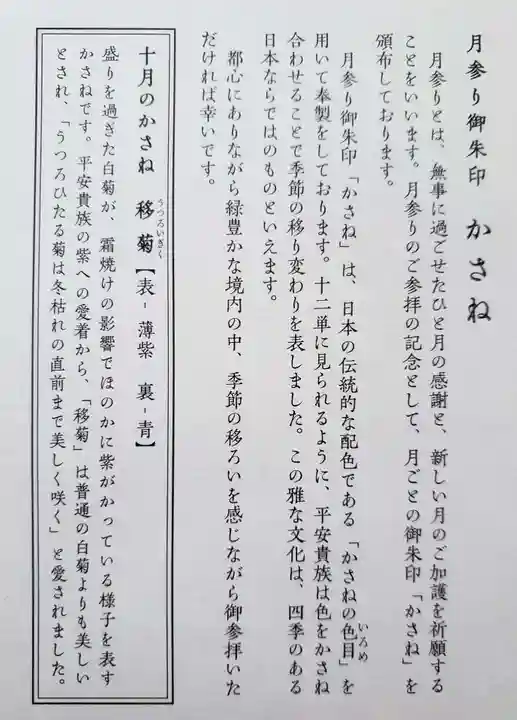 月参り御朱印 かさね
月参りとは、無事に過ごせたひと月の感謝と、新しい月のご加護を祈願する
ことをいいます。月参りのご参拝の記念として、月ごとの御朱印「かさね」を
頒布しております。
月参り御朱印「かさね」は、日本の伝統的な配色である「かさねの色目」を
いろめ
用いて奉製をしております。十二単に見られるように、平安貴族は色をかさね
合わせることで季節の移り変わりを表しました。この雅な文化は、四季のある
日本ならではのものといえます。
都心にありながら緑豊かな境内の中、季節の移ろいを感じながら御参拝いた
だければ幸いです。
十月のかさね 移菊【表-薄紫 裏-青】
うつろいぎく
盛りを過ぎた白菊が、霜焼けの影響でほのかに紫がかっている様子を表す
かさねです。平安貴族の紫への愛着から、「移菊」は普通の白菊よりも美しい
とされ、「うつろひたる菊は冬枯れの直前まで美しく咲く」と愛されました。